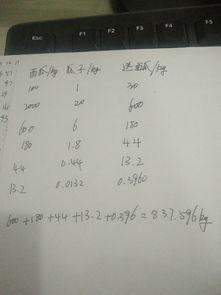 Esc
F1
F2
F3
F4
F5
西瓜/kg 瓜子/kg 送西瓜/kg
100 1 30
2000 20 600
600 6 180
180 1.8 44
44 0.44 13.2
13.2 0.0132 0.3960
600+180+44+13.2+0.396=837.596kg